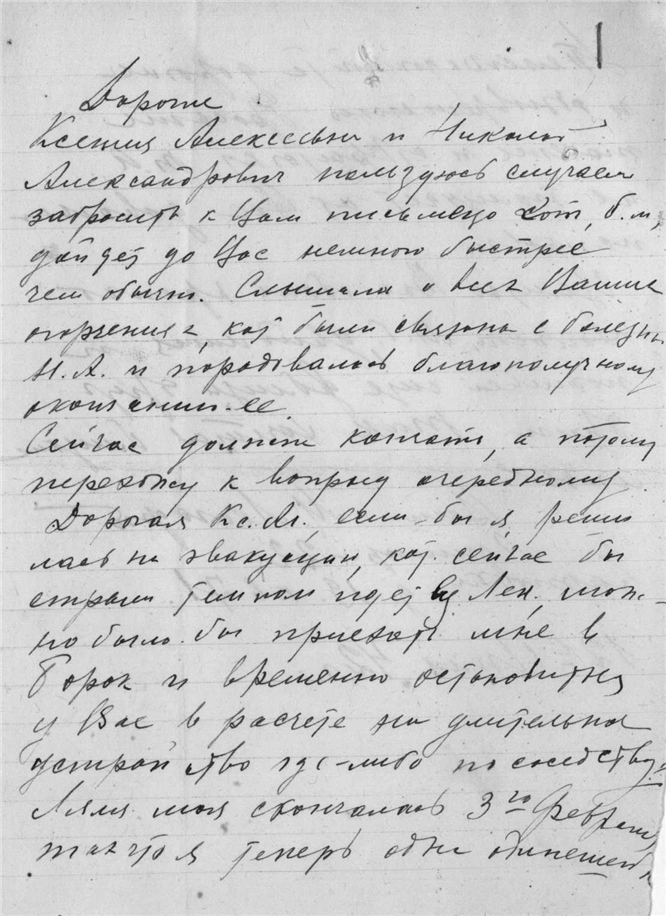 Дорогие
Ксения Алексеевна и Николай
Александрович пользуюсь случаем
забросить к Вам письмецо кот, б.м,
дойдет до Вас немного быстрее
чем обычн. Слышала о всех Ваших
огорчениях, кот были связаны с болезнь
Н.А. и порадовалась благополучному
окончанию ее.
Сейчас должна кончать, а потому
перехожу к вопросу очередному.
Дорогая Кс. Ал, если бы я реши
лась на эвакуацию, кот. сейчас бы
стрым темпом идет в Лен, мож-
но было бы приехать мне в
Борок и временно остановиться
у Вас в расчете на длительное
устройство где-либо по соседству.
Ляля моя скончалась 3го Февраля,
так что я теперь одна одинешень